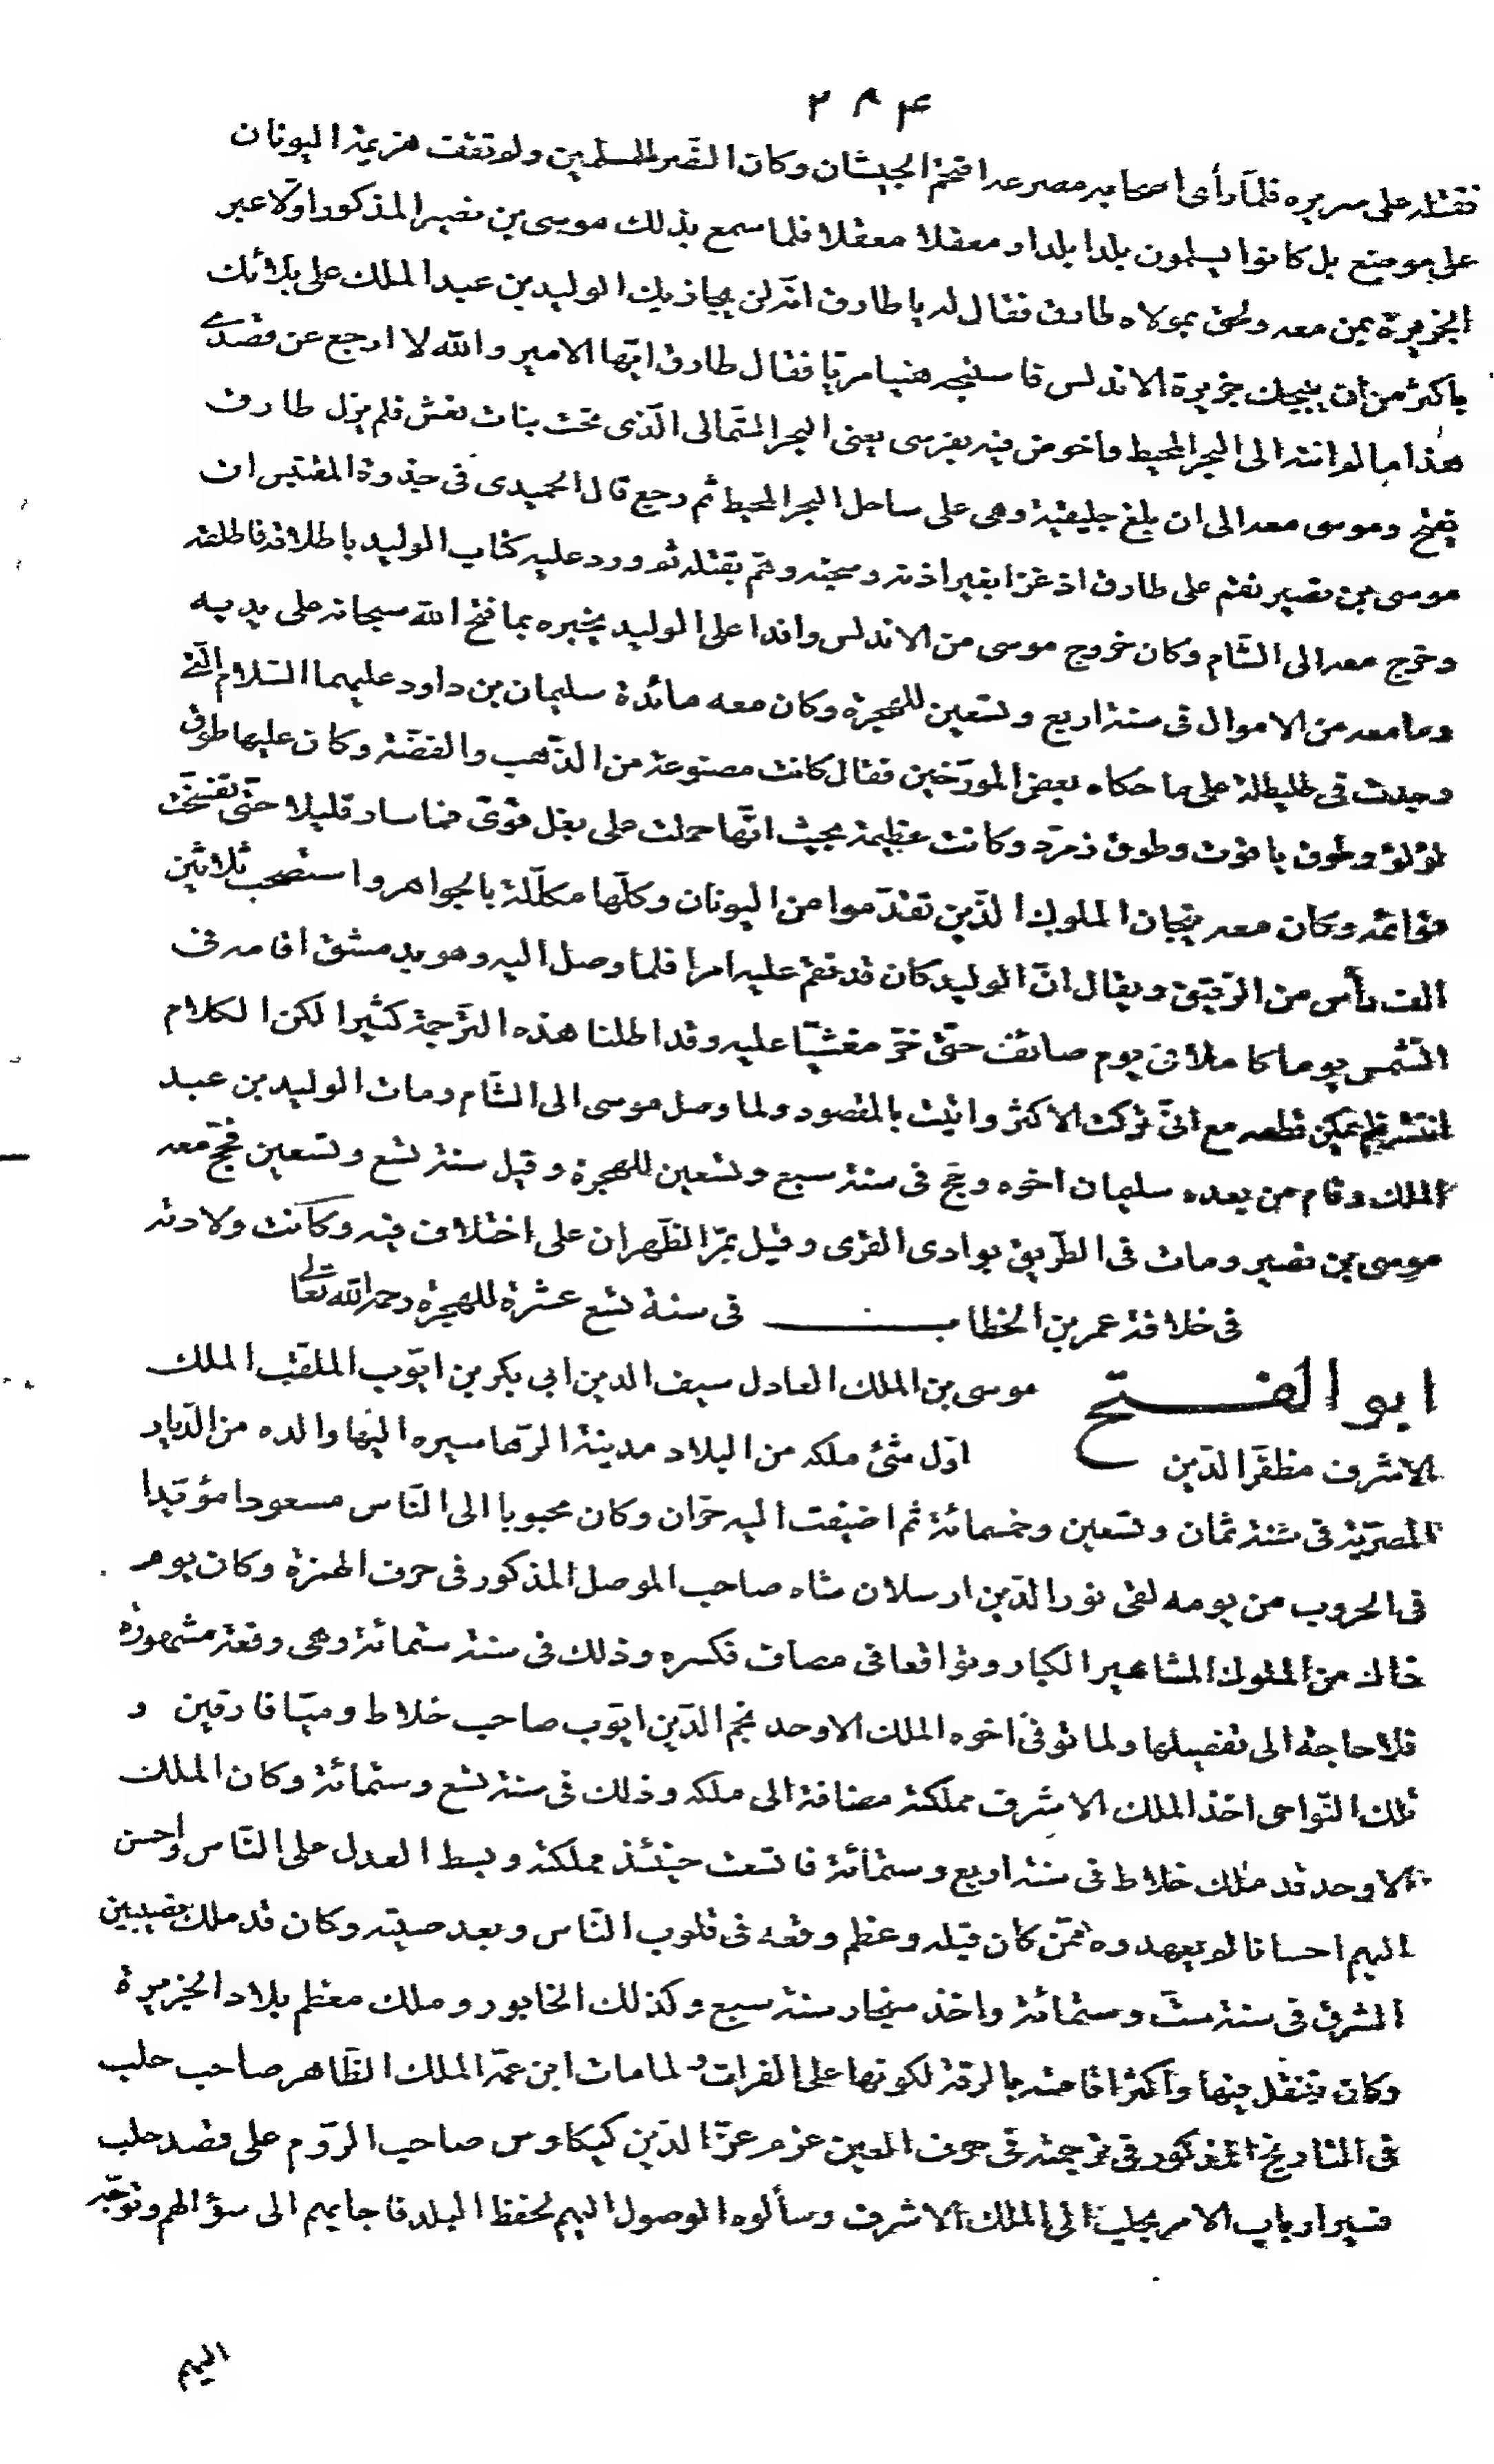 ۲۸۴
فقتله على سريره فلمّا رأى اصحابه مصرعه اقتحم الجيشان وكان النّصر للمسلمين ولم تقف هزيمة اليونان
على موضع بل كانوا يسلمون بلدا بلدا ومعقلا معقلا فلما سمع بذلك موسى بن نصير المذكور اوّلا عبر
الجزيرة بمن معه ولحق بمولاه طارق فقال له يا طارق انّه لن يجازيك الوليد بن عبد الملك على بلائك
باكثر من ان يبيحك جزيرة الاندلس فاستبحه هنيا مريّا فقال طارق ايّها الامير والله لا ارجع عن قصدى
هذا ما لم انته الى البحر المحيط واخوض فيه بفرسى يعنى البحر الشّمالى الّذى تحت بنات نعش فلم يزل طارق
يفتح وموسى معه الى ان بلغ جليقية وهى على ساحل البحر المحيط ثم رجع قال الحميدى فى جذوة المقتبس ان
موسى بن نصير نقم على طارق اذ غزا بغير اذنه وسجنه وهمّ بقتله ثم ورد عليه كتاب الوليد باطلاقه فاطلقه
وخرج معه الى الشّام وكان خروج موسى من الاندلس وافدا على الوليد يخبره بما فتح الله سبحانه على يديه
وما معه من الاموال فى سنة اربع وتسعين للهجرة وكان معه مائدة سليمان بن داود عليهما السّلام الّتى
وجدت فى طليطلة على ما حكاه بعض المورّخين فقال كانت مصنوعة من الذّهب والفضّة وكان عليها طوق
لؤلؤ وطوق ياقوت وطوق زمرّد وكانت عظيمة بحيث انّها حملت على بغل قوىّ فما سار قليلا حتّى تفسّخت
قوائمه وكان معه تيجان الملوك الّذين تقدّموا من اليونان وكلّها مكلّلة بالجواهر واستصحب ثلاثين
الف رأس من الرّقيق ويقال انّ الوليد كان قد نقم عليه امرا فلما وصل اليه وهو بدمشق اقامه فى
الشّمس يوما كاملا فى يوم صائف حتّى خرّ مغشيّا عليه وقد اطلنا هذه التّرجمة كثيرا لكن الكلام
انتشر فلم يمكن قطعه مع انّى تركت الاكثر واتيت بالمقصود ولما وصل موسى الى الشّام ومات الوليد بن عبد
الملك وقام من بعده سليمان اخوه وحجّ فى سنة سبع وتسعين للهجرة وقيل سنة تسع وتسعين فحجّ معه
موسى بن نصير ومات فى الطّريق بوادى القرى وقيل بمرّ الظّهران على اختلاف فيه وكانت ولادته
فى خلافة عمر بن الخطاب فى سنة تسع عشرة للهجرة رحمه الله تعالى
ابو الفتح موسى بن الملك العادل سيف الدين ابى بكر بن ايّوب الملقّب الملك
الاشرف مظفّر الدّين اوّل شىء ملكه من البلاد مدينة الرّها سيره اليها والده من الدّيار
المصرّية فى سنة ثمان وتسعين وخمسمائة ثم اضيفت اليه حرّان وكان محبوبا الى النّاس مسعودا مؤيّدا
فى الحروب من يومه لقى نور الدّين ارسلان شاه صاحب الموصل المذكور فى حرف الهمزة وكان يوم
ذاك من الملوك المشاهير الكبار وتواقعا فى مصاف فكسره وذلك فى سنة ستمائة وهى وقعة مشهورة
فلا حاجة الى تفصيلها ولما توفّى اخوه الملك الاوحد نجم الدّين ايّوب صاحب خلاط وميّافارقين و
تلك النّواحى اخذ الملك الاشرف مملكته مضافة الى ملكه وذلك فى سنة تسع وستمائة وكان الملك
الاوحد قد ملك خلاط فى سنة اربع وستمائة فاتّسعت حينئذ مملكته وبسط العدل على النّاس واحسن
اليهم احسانا لم يعهدوه ممّن كان قبله وعظم وقعه فى قلوب النّاس وبعد صيته وكان قد ملك نصيبين
الشرق فى سنة ستّ وستمائة واخذ سنجار سنة سبع وكذلك الخابور وملك معظم بلاد الجزيرة
وكان يتنقل فيها واكثر اقامته بالرقّة لكونها على الفرات ولما مات ابن عمّه الملك الظّاهر صاحب حلب
فى التاريخ المذكور فى ترجمته فى حرف الغين عزم عزّ الدّين كيكاوس صاحب الرّوم على قصد حلب
فسير ارباب الامر بحلب الى الملك الاشرف وسألوه الوصول اليهم لحفظ البلد فاجابهم الى سؤالهم وتوجّه
اليهم